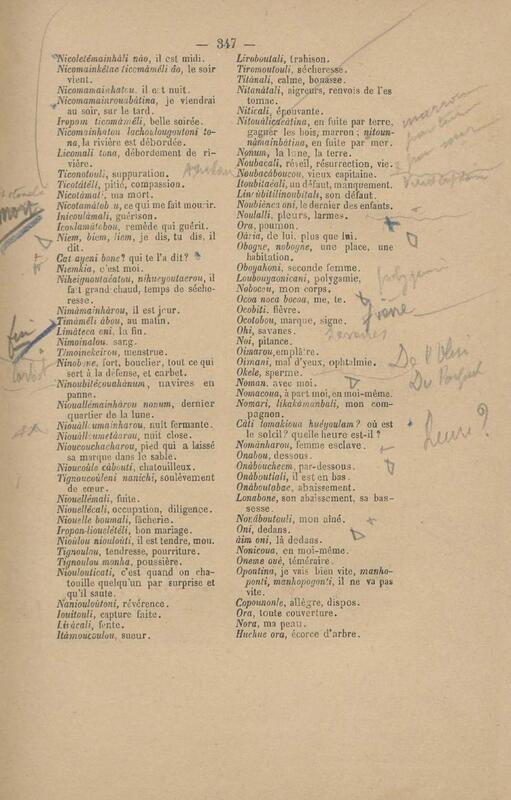 — 347 —
Nicoletémainhàli não, il est midi.
Nicomainkêlae ticomàméli áo, le soir
vient.
Nicomamainhatou, il est nuit.
Nicomamainrouabàtina, je viendrai
au soir, sur le tard.
Iropam ticomàméli, belle soirée.
Nicomoinhatou lachoulougoutoni to-
na, la rivière est débordée.
Licomali tona, débordement de ri-
vière.
Ticonotouli, suppuration.
Ticotàtéli, pitié, compassion.
Nicotàmali, ma mort.
Nicotamàtobou, ce qui me fait mourir.
Inicoulàmali, guérison.
Icoulàmatobou, remède qui guérit.
Niem, biem, liem, je dis, tu dis, il
dit.
Cat ayeni bone? qui te l'a dit?
Niemkia, c'est moi.
Niheignoutaéatou, nihueyoutaerou, il
fait grand chaud, temps de séche-
resse.
Nimàmainhàrou, il est jour.
Timàméli àbou, au matin.
Limàteca oni, la fin.
Nimoinalou, sang.
Timoinekeirou, menstrue.
Ninobone, fort, bouclier, tout ce qui
sert à la défense, et carbet.
Ninoubitécouahànum, navires en
panne.
Niouallémainhàrou nonum, dernier
quartier de la lune.
Niouàllcumainharou, nuit fermante.
Niouàllcumetàarou, nuit close.
Nioucouchacharou, pied qui a laissé
sa marque dans le sable.
Nioucoùle càbouti, chatouilleux.
Tignoucoùleni nanichi, soulèvement
de cœur.
Niouellémali, fuite.
Niouellécali, occupation, diligence.
Niouelle boumali, fàcherie.
Iropon-liouelétéli, bon mariage.
Nioùlou niouloùti, il est tendre, mou.
Tignoulou, tendresse, pourriture.
Tignoulou monha, poussière.
Nioulouticati, c'est quand on cha-
touille quelqu'un par surprise et
qu'il saute.
Naniouloùtoni, révérence.
Iouitouli, capture faite.
Liràcali, fente.
Itàmoucoulou, sueur.
Liroboutali, trahison.
Tiromoutouli, sécheresse.
Titànali, calme, bonasse.
Nitanàtali, aigreurs, renvois de l'es
tomac.
Niticali, épouvante.
Nitouàlicaéàtina, en fuite par terre,
gagner les bois, marron; nitoun-
nàmainbàtina, en fuite par mer.
Nonum, la lune, la terre.
Noubacali, réveil, résurrection, vie.
Noubacàboucou, vieux capitaine.
Itoubitaéali, un défaut, manquement.
Linoùbitilinoubitali, son défaut.
Noubiènca oni, le dernier des enfants.
Noulalli, pleurs, larmes.
Ora, poumon.
Oària, de lui, plus que lui.
Obogne, nobogne, une place, une
habitation.
Oboyahoni, seconde femme.
Loubouyaonicani, polygamie,
Nobocou, mon corps.
Ocoa noca bocoa, me, te.
Ocobiti, fièvre.
Ocotobou, marque, signe.
Ohi, savanes.
Noi, pitance.
Oimarou, emplàtre.
Oimani, mal d'yeux, ophtalmie.
Okele, sperme.
Noman, avec moi.
Nomacoua, à part moi, en moi-même.
Nomari, likakàmanbali, mon com-
pagnon.
Càti lomakioua huéyoulam? où est
le soleil? quelle heure est-il?
Nomànharou, femme esclave.
Onabou, dessous.
Onàboucheem, par-dessous.
Onàboutiali, il est en bas.
Onàboutabae, abaissement.
Lonabone, son abaissement, sa bas-
sesse.
Noràboutouli, mon aîné.
Oni, dedans.
àim oni, là dedans.
Nonicoua, en moi-même.
Oneme ouè, téméraire.
Opontina, je vais bien vite, manho-
ponti, manhopogonti, il ne va pas
vite.
Copounonle, allègre, dispos.
Ora, toute couverture.
Nora, ma peau.
Huchue ora, écorce d'arbre.
mort
fin
carbet
polygamie
fièvre
savanes
heure?